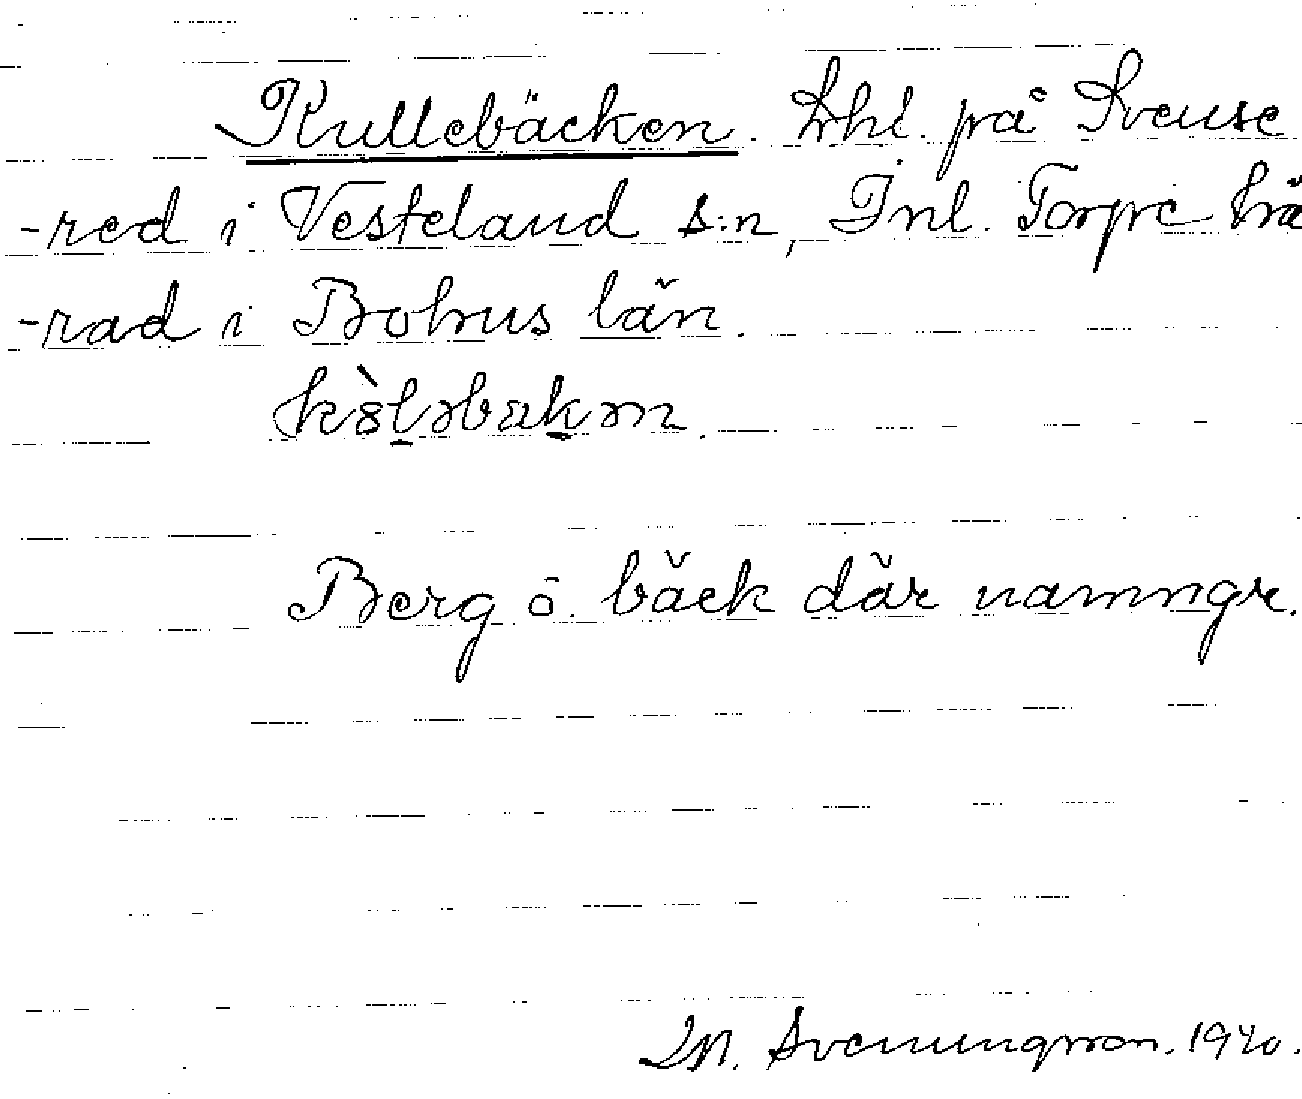 Kullebäcken. Lhl. på Svense
-red i Vesteland s:n, Inl. Torpe hä
-rad i Bohus län.
Berg o. bäck där namngr.
M. Svenungsson. 1940.